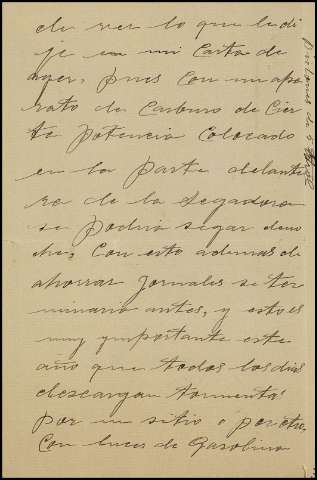 de ver lo que le di
je en mi Carta de
ayer, pues Con un apa
rato de Carburo de Cier
ta potencia Colocado
en la parte delante
ra de la Segadora
se podria segar de no
che, Con esto ademas de
ahorrar Jornales se ter
minaria antes, y esto es
muy ymportante este
año que todos los dias
descargan tormenta
por un sitio ó por otro,
Con luces de Gasolina